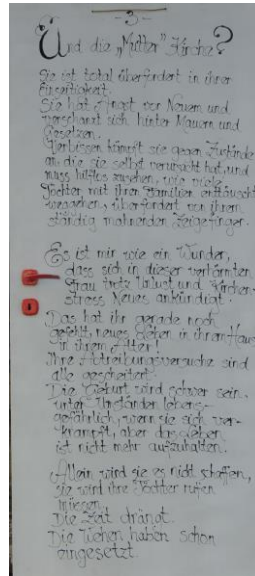 - 3 -
Und die „Mutter" Kirche?
Sie ist total überfordert in ihrer
Einseitigkeit.
Sie hat Angst vor Neuem und
verschanzt sich hinter Mauern und
Gesetzen.
Verbissen kämpft sie gegen Zustände
an, die sie selbst verursacht hat, und
muss hilflos zusehen, wie viele
Töchter mit ihren Familien enttäuscht
weggehen, überfordert von ihrem
ständig mahnenden Zeigefinger.
Es ist mir wie ein Wunder,
dass sich in dieser verhärmten
Frau trotz Unlust und Kirchen-
stress Neues ankündigt.
Das hat ihr gerade noch
gefehlt, neues Leben in ihrem Haus
in ihrem Alter!
Ihre Abtreibungsversuche sind
alle gescheitert.
Die Geburt wird schwer sein,
unter Umständen lebens-
gefährlich, wenn sie sich ver-
krampft, aber das Leben
ist nicht mehr aufzuhalten.
Allein wird sie es nicht schaffen,
sie wird ihre Töchter rufen
müssen.
Die Zeit drängt.
Die Wehen haben schon
eingesetzt.